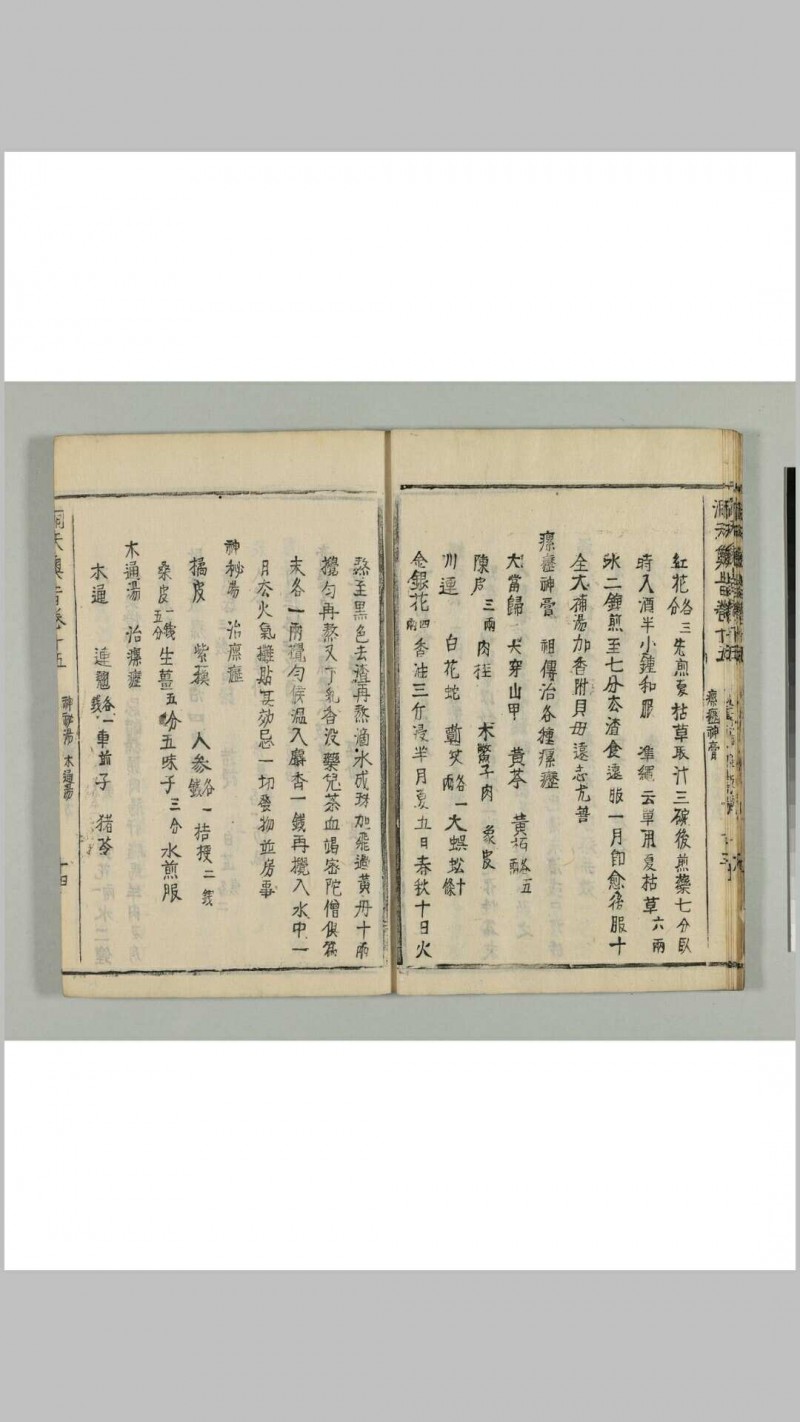 瘰癧神膏
紅花各三分先煎夏枯草取汁三碗後煎藥七分臥
時入酒半小鍾和服 準繩云單用夏枯草六兩
水二鍾煎至七分去渣食遠服一月卽愈後服十
全大補湯加香附貝母遠志尤善
瘰癧神膏 祖傳治各種瘰癧
大當歸 大穿山甲 黃芩 黃柏各五兩
陳皮三兩肉桂 木鱉子肉 象皮
川連 白花蛇 各一兩大蜈蚣十條
金銀花四兩香油三斤浸半月夏五日春秋十日火
熬至黑色去渣再熬滴水成珠加飛過黃丹十兩
攪勻再熬又下乳香沒藥兒茶血竭密陀僧俱爲
末各一兩攪勻候溫入麝香一錢再攪入水中一
月去火氣攤貼其効忌一切發物並房事
神秘湯 治瘰癧
橘皮 紫蘇 人參各一錢桔梗二錢
桑皮一錢五分生薑五分五味子三分水煎服
木通湯 治瘰癧
木通 連翹各一錢車前子 猪苓
洞天奧旨卷十五
神秘湯 木通湯
十四